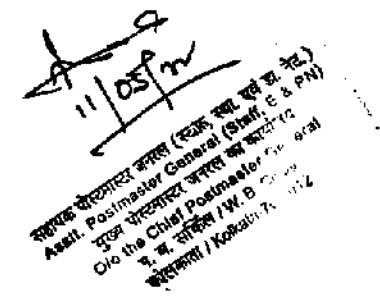 11/05/22
सहायक पोस्टमास्टर जनरल (स्टाफ, स्था. एवं डा. नेट.)
Asstt. Postmaster General (Staff, E & PN)
मुख्य पोस्टमास्टर जनरल का कार्यालय
O/o the Chief Postmaster General
प. ब. सर्किल / W. B.
कोलकाता / Kolkata